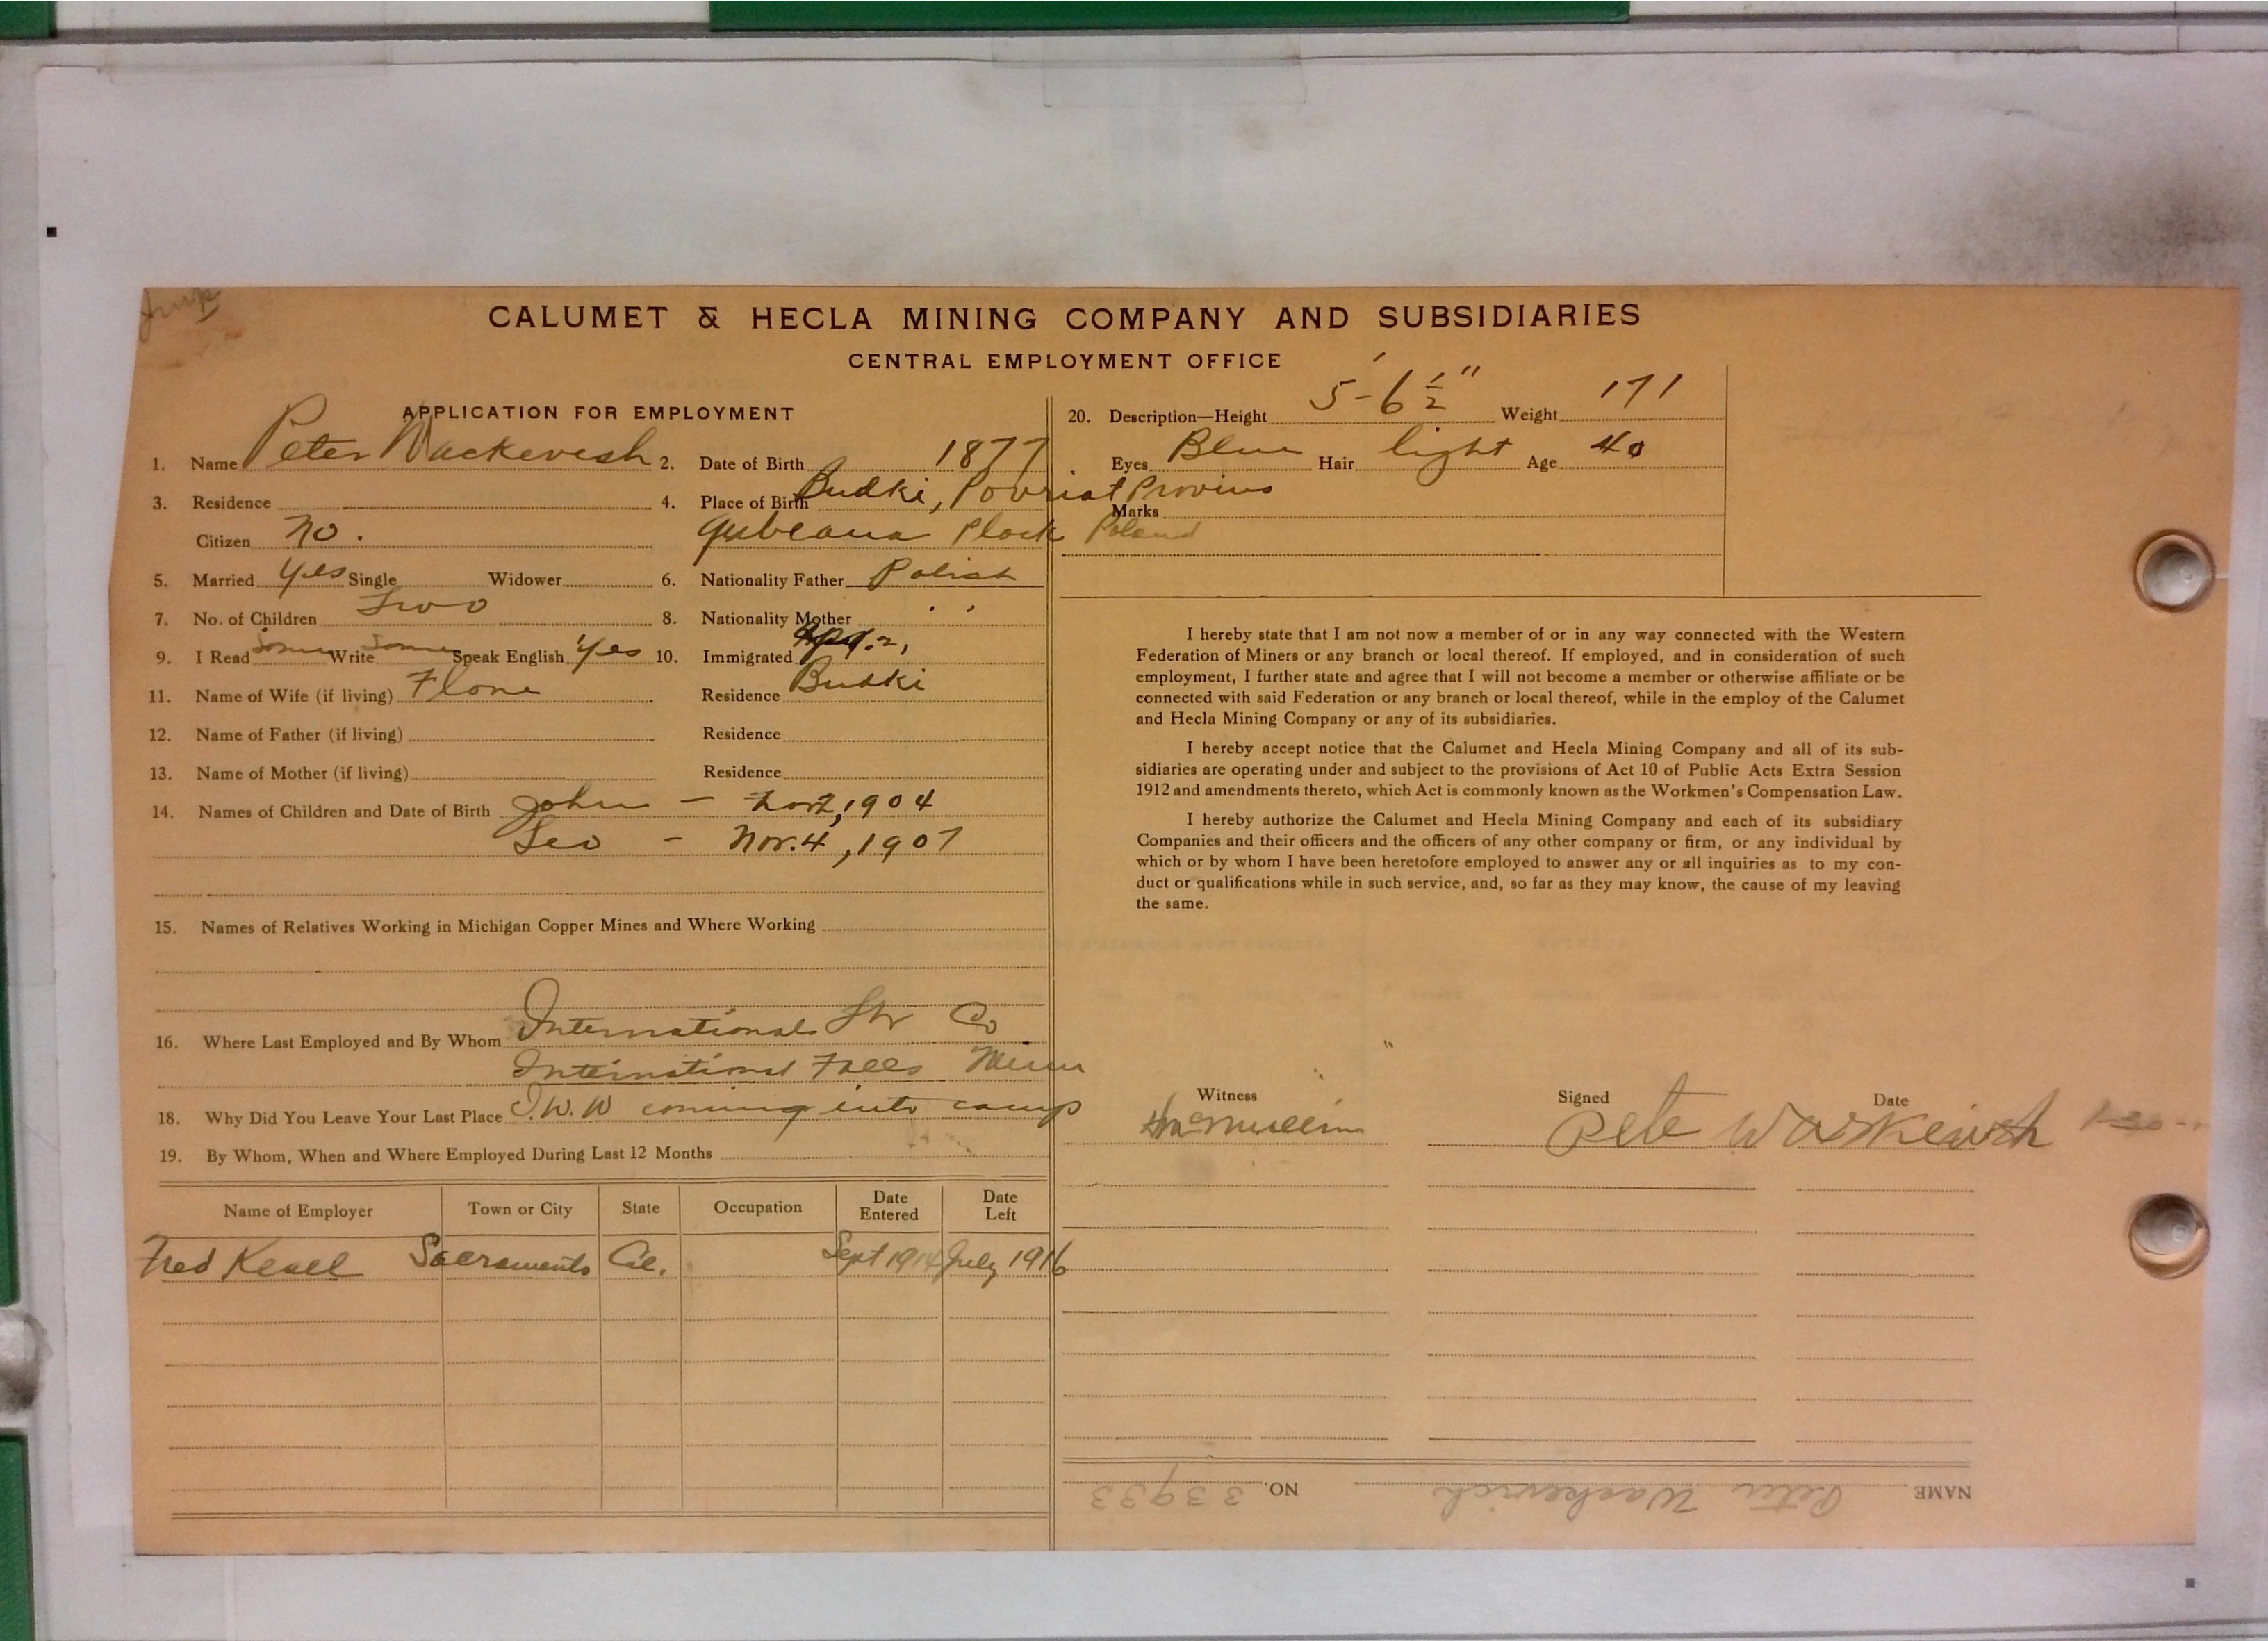 CALUMET & HECLA MINING COMPANY AND SUBSIDIARIES
CENTRAL EMPLOYMENT OFFICE
APPLICATION FOR EMPLOYMENT
1. Name Peter Wackevesh 2. Date of Birth 1877
3. Residence 4. Place of Birth Budki, Povriat Provins
Citizen No. Gubeana Plock Poland
5. Married Yes Single Widower 6. Nationality Father Polish
7. No. of Children Two 8. Nationality Mother " "
9. I Read Some Write Some Speak English Yes 10. Immigrated
11. Name of Wife (if living) Flone Residence Budki
12. Name of Father (if living) Residence
13. Name of Mother (if living) Residence
14. Names of Children and Date of Birth John - 1904
Leo - Nov. 4, 1907
15. Names of Relatives Working in Michigan Copper Mines and Where Working
16. Where Last Employed and By Whom International Co
International Falls Minn
18. Why Did You Leave Your Last Place I.W.W coming into camp
19. By Whom, When and Where Employed During Last 12 Months
Name of Employer Town or City State Occupation Date Entered Date Left
Fred Kesel Sacramento Cal. Sept 1914 July 1916
20. Description—Height 5'-6 1/2" Weight 171
Eyes Blue Hair light Age 40
Marks
I hereby state that I am not now a member of or in any way connected with the Western
Federation of Miners or any branch or local thereof. If employed, and in consideration of such
employment, I further state and agree that I will not become a member or otherwise affiliate or be
connected with said Federation or any branch or local thereof, while in the employ of the Calumet
and Hecla Mining Company or any of its subsidiaries.
I hereby accept notice that the Calumet and Hecla Mining Company and all of its sub-
sidiaries are operating under and subject to the provisions of Act 10 of Public Acts Extra Session
1912 and amendments thereto, which Act is commonly known as the Workmen's Compensation Law.
I hereby authorize the Calumet and Hecla Mining Company and each of its subsidiary
Companies and their officers and the officers of any other company or firm, or any individual by
which or by whom I have been heretofore employed to answer any or all inquiries as to my con-
duct or qualifications while in such service, and, so far as they may know, the cause of my leaving
the same.
Witness Signed Date
Pete Waskewish
NAME Peter Waskevich NO. 33933